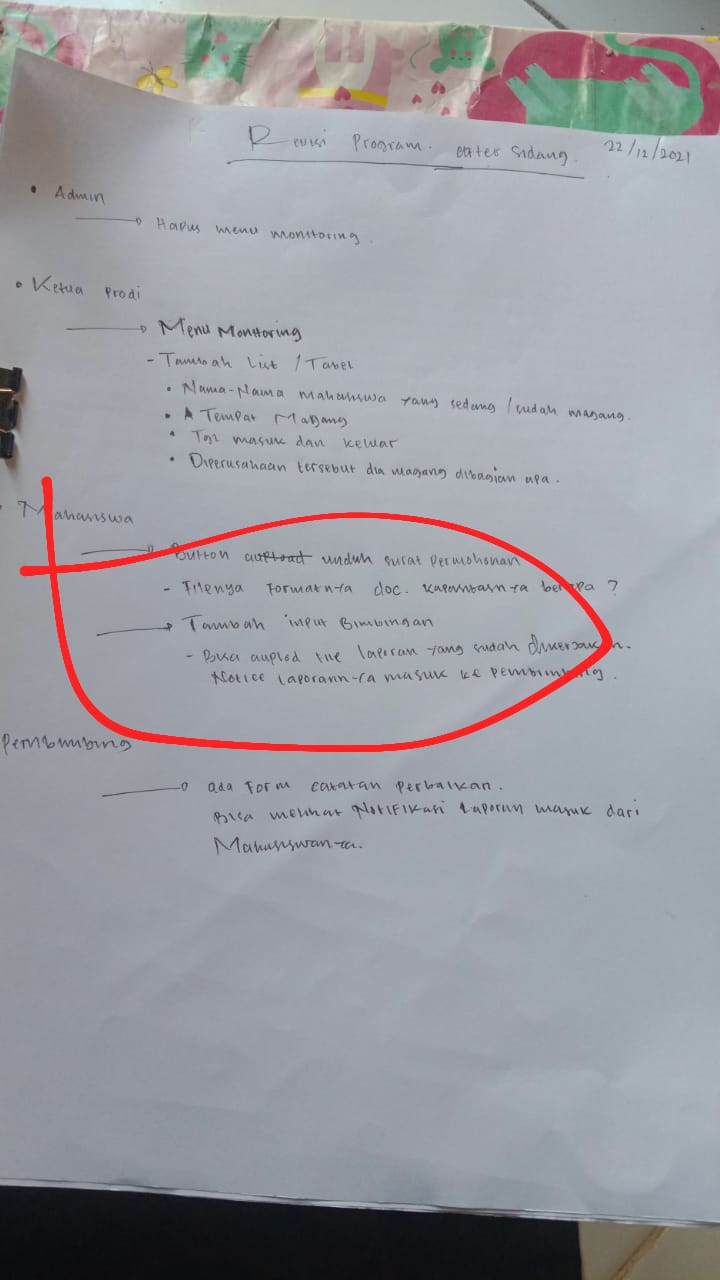 Revisi Program. after sidang. 22/12/2021
• Admin
Hapus menu monitoring.
• Ketua prodi
Menu Monitoring
- Tambah List / Tabel
• Nama-Nama mahasiswa yang sedang / sudah magang.
• Tempat Magang
• Tgl masuk dan keluar
• Diperusahaan tersebut dia magang dibagian apa.
• Mahasiswa
Button aupload unduh surat permohonan
- Filenya Formatnya doc. kapasitasnya berapa ?
Tambah input Bimbingan
- Bisa auplod file laporan yang sudah dikerjakan.
Notice Laporannya masuk ke pembimbing.
Pembimbing
ada Form catatan perbaikan.
Bisa melihat Notifikasi Laporan masuk dari
Mahasiswanya.